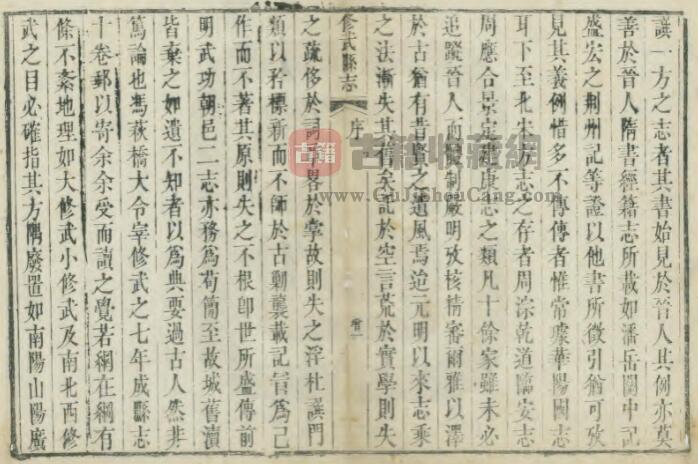 譔一方之志者其書始見於晉人其例亦莫
善於晉人隋書經籍志所載如潘岳關中記
盛宏之荆州記等證以他書所徵引猶可攷
見其義例惜多不傳傳者惟常璩華陽國志
耳下至北宋方志之存者周淙乾道臨安志
周應合景定建康志之類凡十餘家雖未必
追蹤晉人而體制嚴明攷核精審爾雅以澤
於古猶有昔賢之遺風焉迨元明以來志乘
之法漸失其舊矣記於空言荒於實學則失
修武縣志
序
古籍收藏網
www.GuJiShouCang.com
之疏侈於詞章畧於掌故則失之浮杜譔門
類以矜標新而不師於古剿襲載記皆為己
作而不著其原則失之不根卽世所盛傳前
明武功朝邑二志亦務為苟簡至故城舊瀆
皆棄之如遺不知者以為典要過古人然非
篤論也馮萩橋大令宰修武之七年成縣志
十卷郵以寄余余受而讀之覺若網在綱有
條不紊地理如大修武小修武及南北西修
武之目必確指其方隅廢置如南陽山陽廣